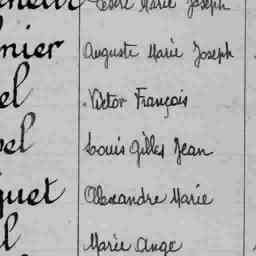 Marie Joseph
nier Auguste Marie Joseph
el Victor François
el Louis Gilles Jean
quet Alexandre Marie
l Marie Ange